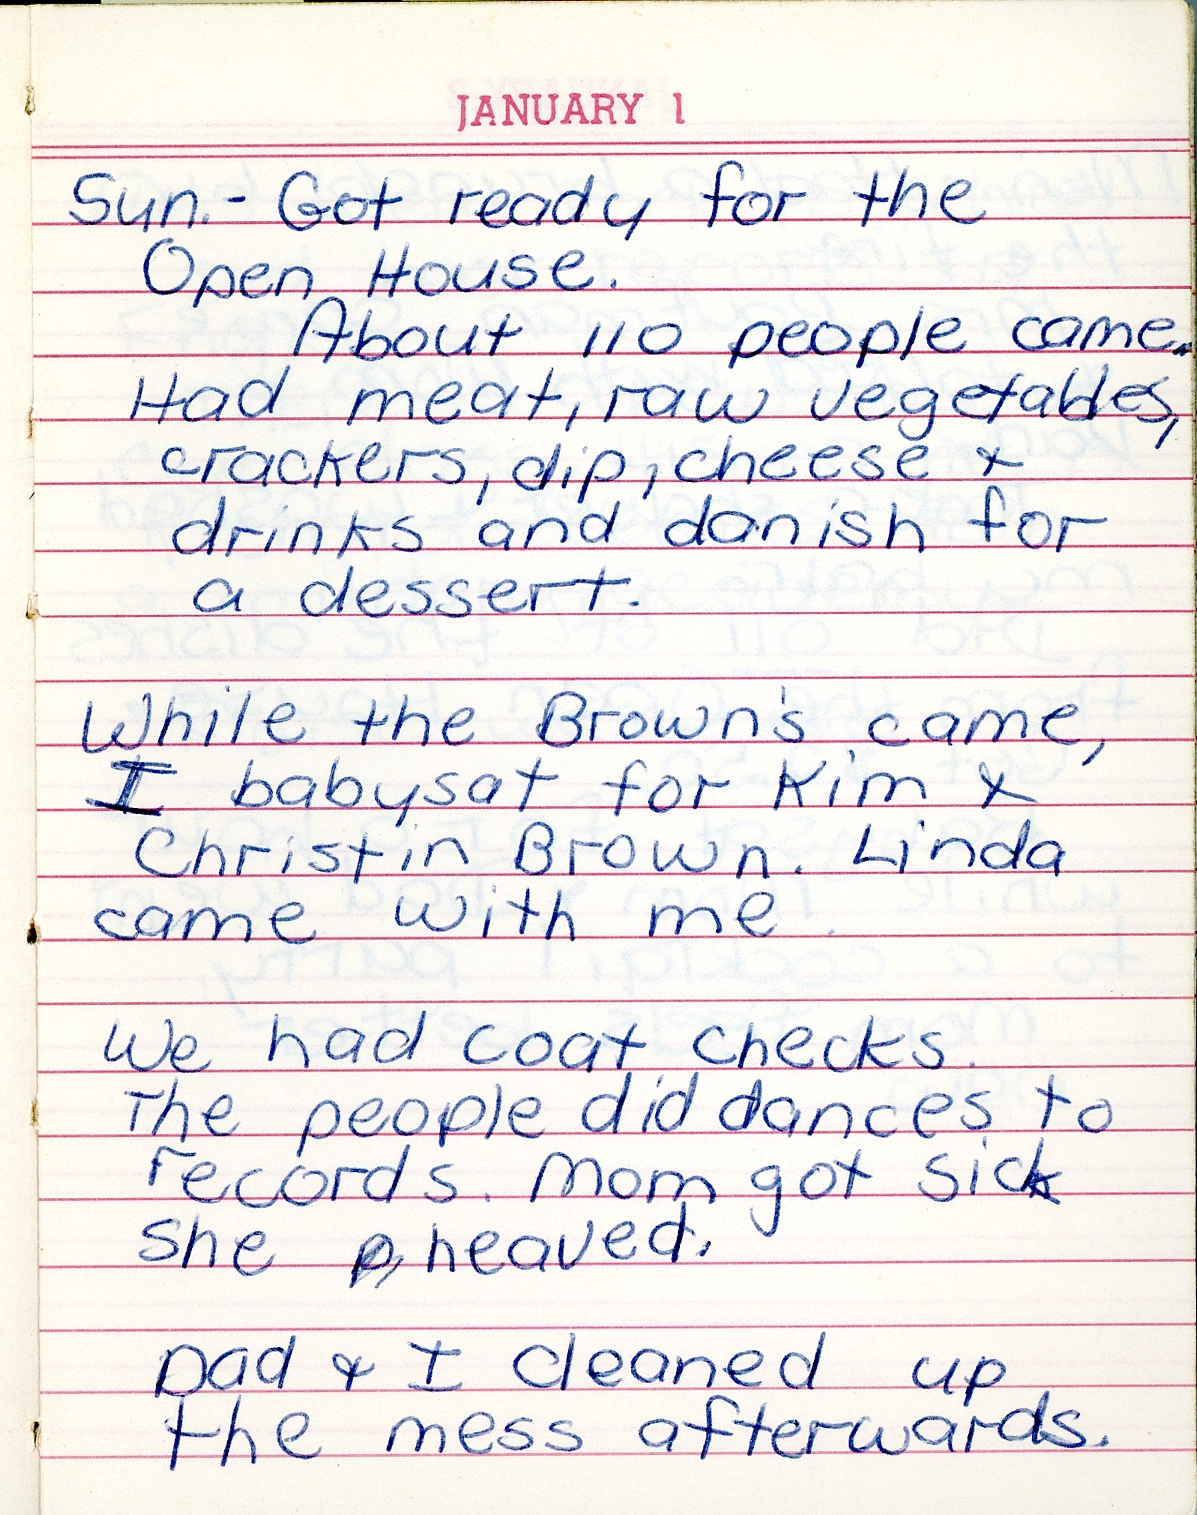 JANUARY 1
Sun.- Got ready for the
Open House.
About 110 people came.
Had meat, raw vegetables,
crackers, dip, cheese &
drinks and danish for
a dessert.
While the Brown's came,
I babysat for Kim &
Christin Brown. Linda
came with me.
We had coat checks.
The people did dances to
records. Mom got sick
she heaved.
Dad & I cleaned up
the mess afterwards.